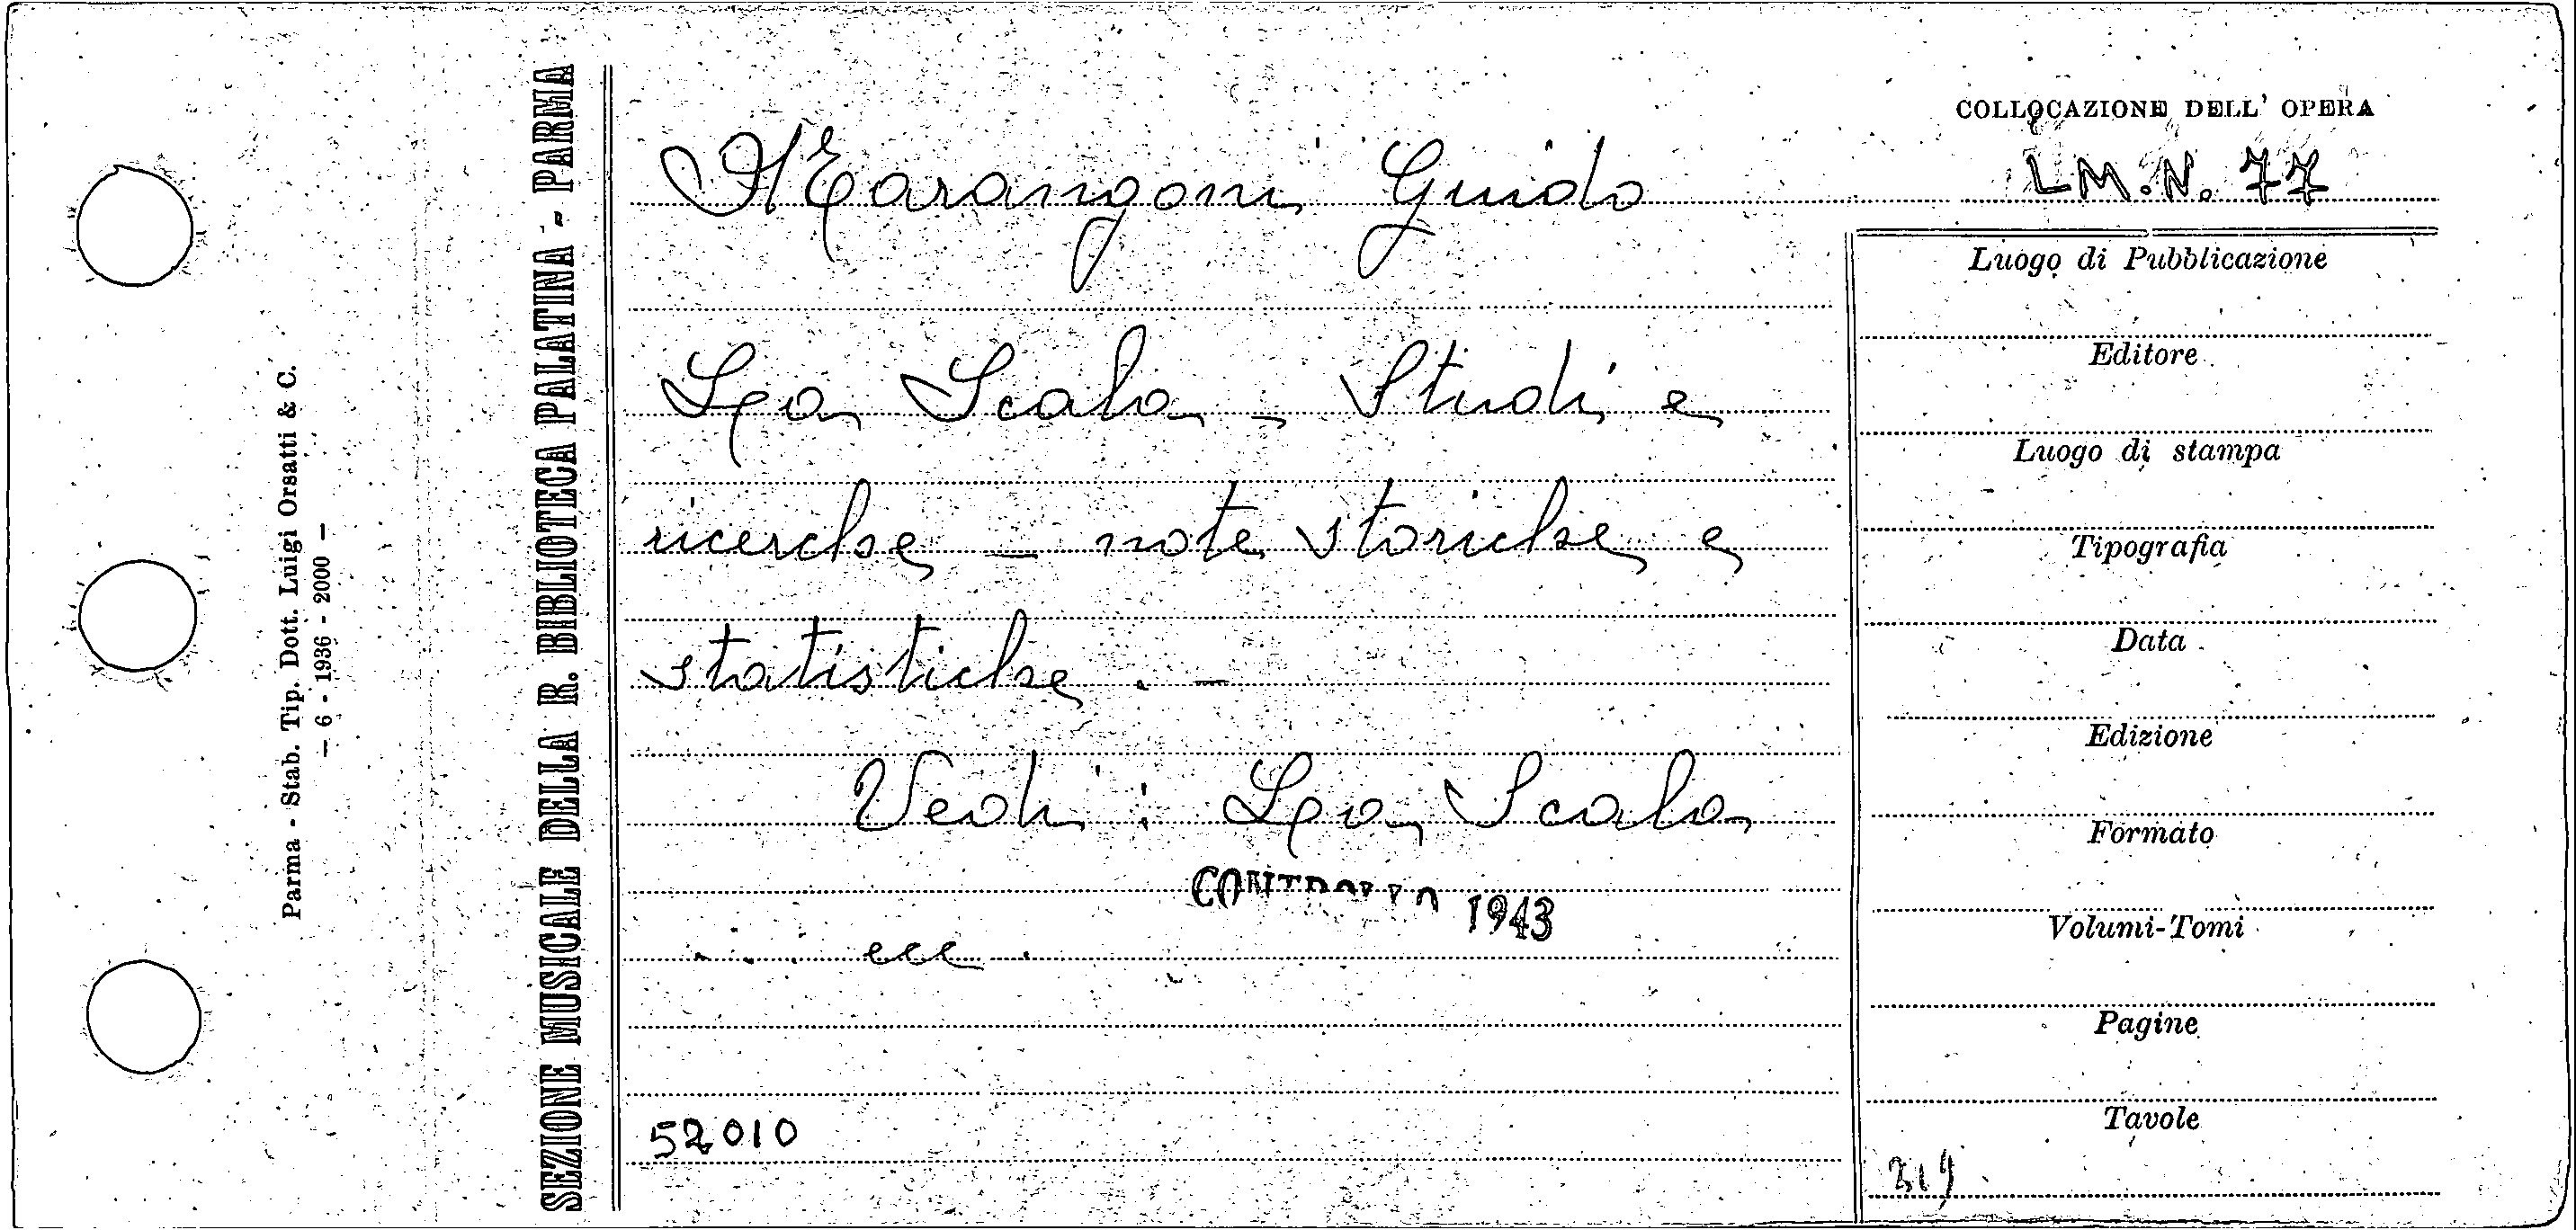 Parma - Stab. Tip. Dott. Luigi Orsatti & C.
— 6 - 1936 - 2000 —
SEZIONE MUSICALE DELLA R. BIBLIOTECA PALATINA - PARMA
Marangoni Guido
La Scala - Studi e
ricerche - note storiche e
statistiche . -
Vedi : La Scala
CONTROLLO 1943
. . . ecc .
52010
COLLOCAZIONE DELL' OPERA
LM.N. 77
Luogo di Pubblicazione
Editore
Luogo di stampa
Tipografia
Data
Edizione
Formato
Volumi-Tomi
Pagine
Tavole